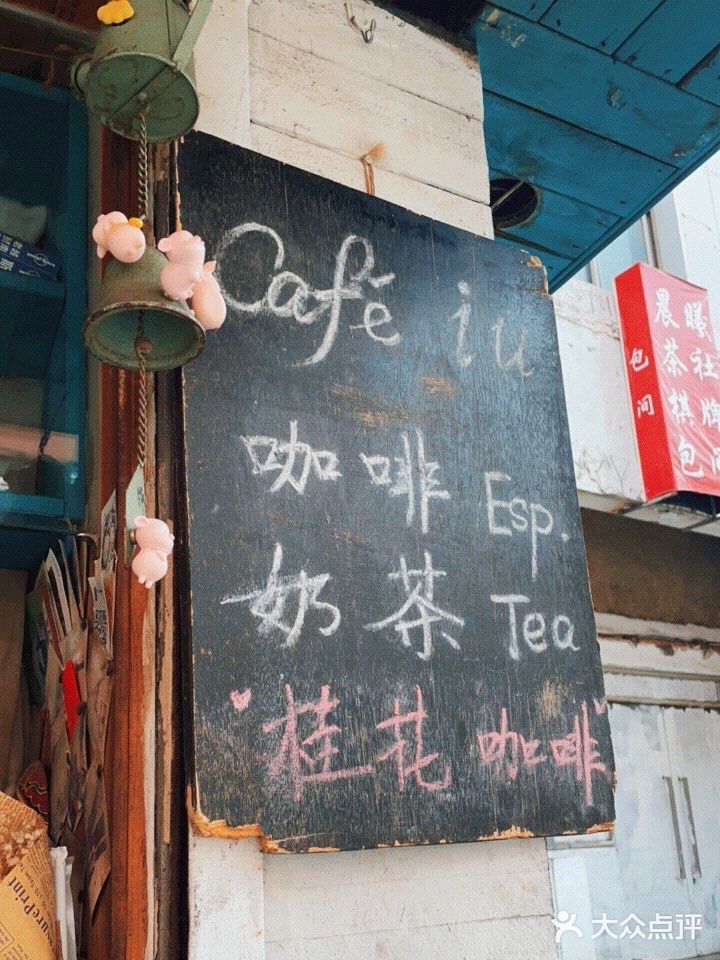 Café iu
咖啡 Esp.
奶茶 Tea
桂花咖啡
晨曦
茶社
棋牌
包间
包间
surePrint
大众点评